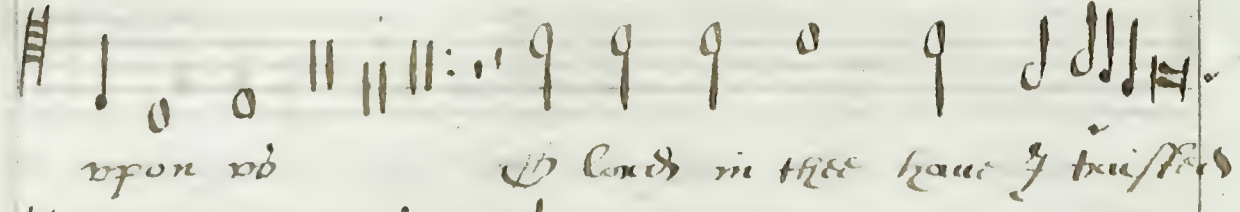 vpon vs O Lord in thee haue I trusted